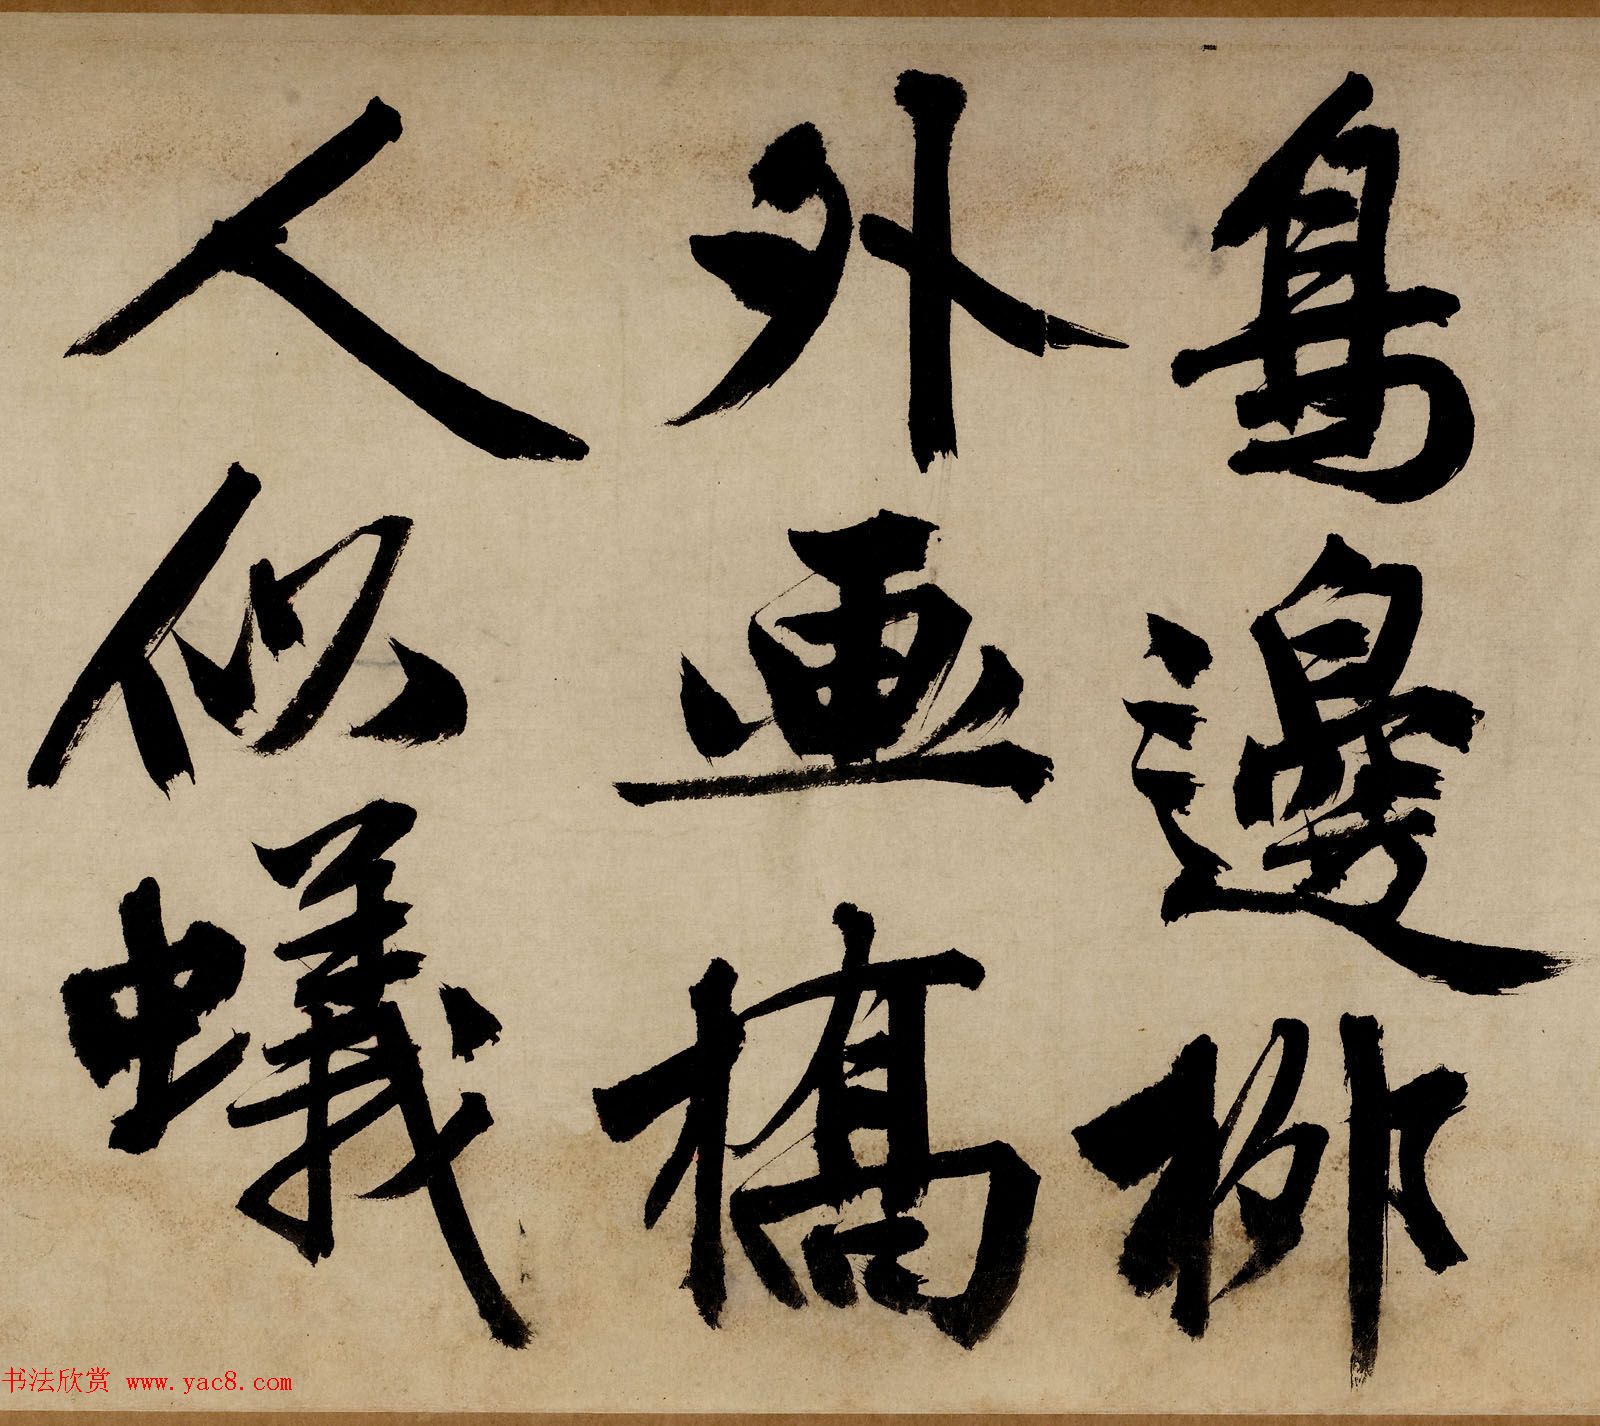 島邊柳
外画橋
人似蟻
书法欣赏 www.yac8.com